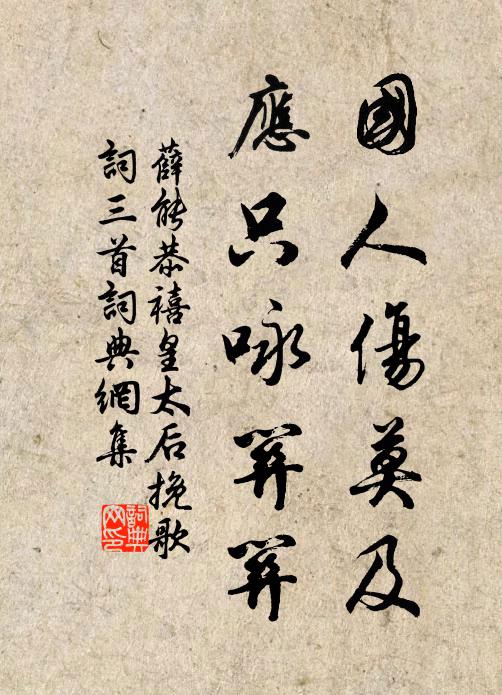 國人傷莫及
應只咏關關
薛能恭禧皇太后挽歌
詞三首詞典網集
詞典網印